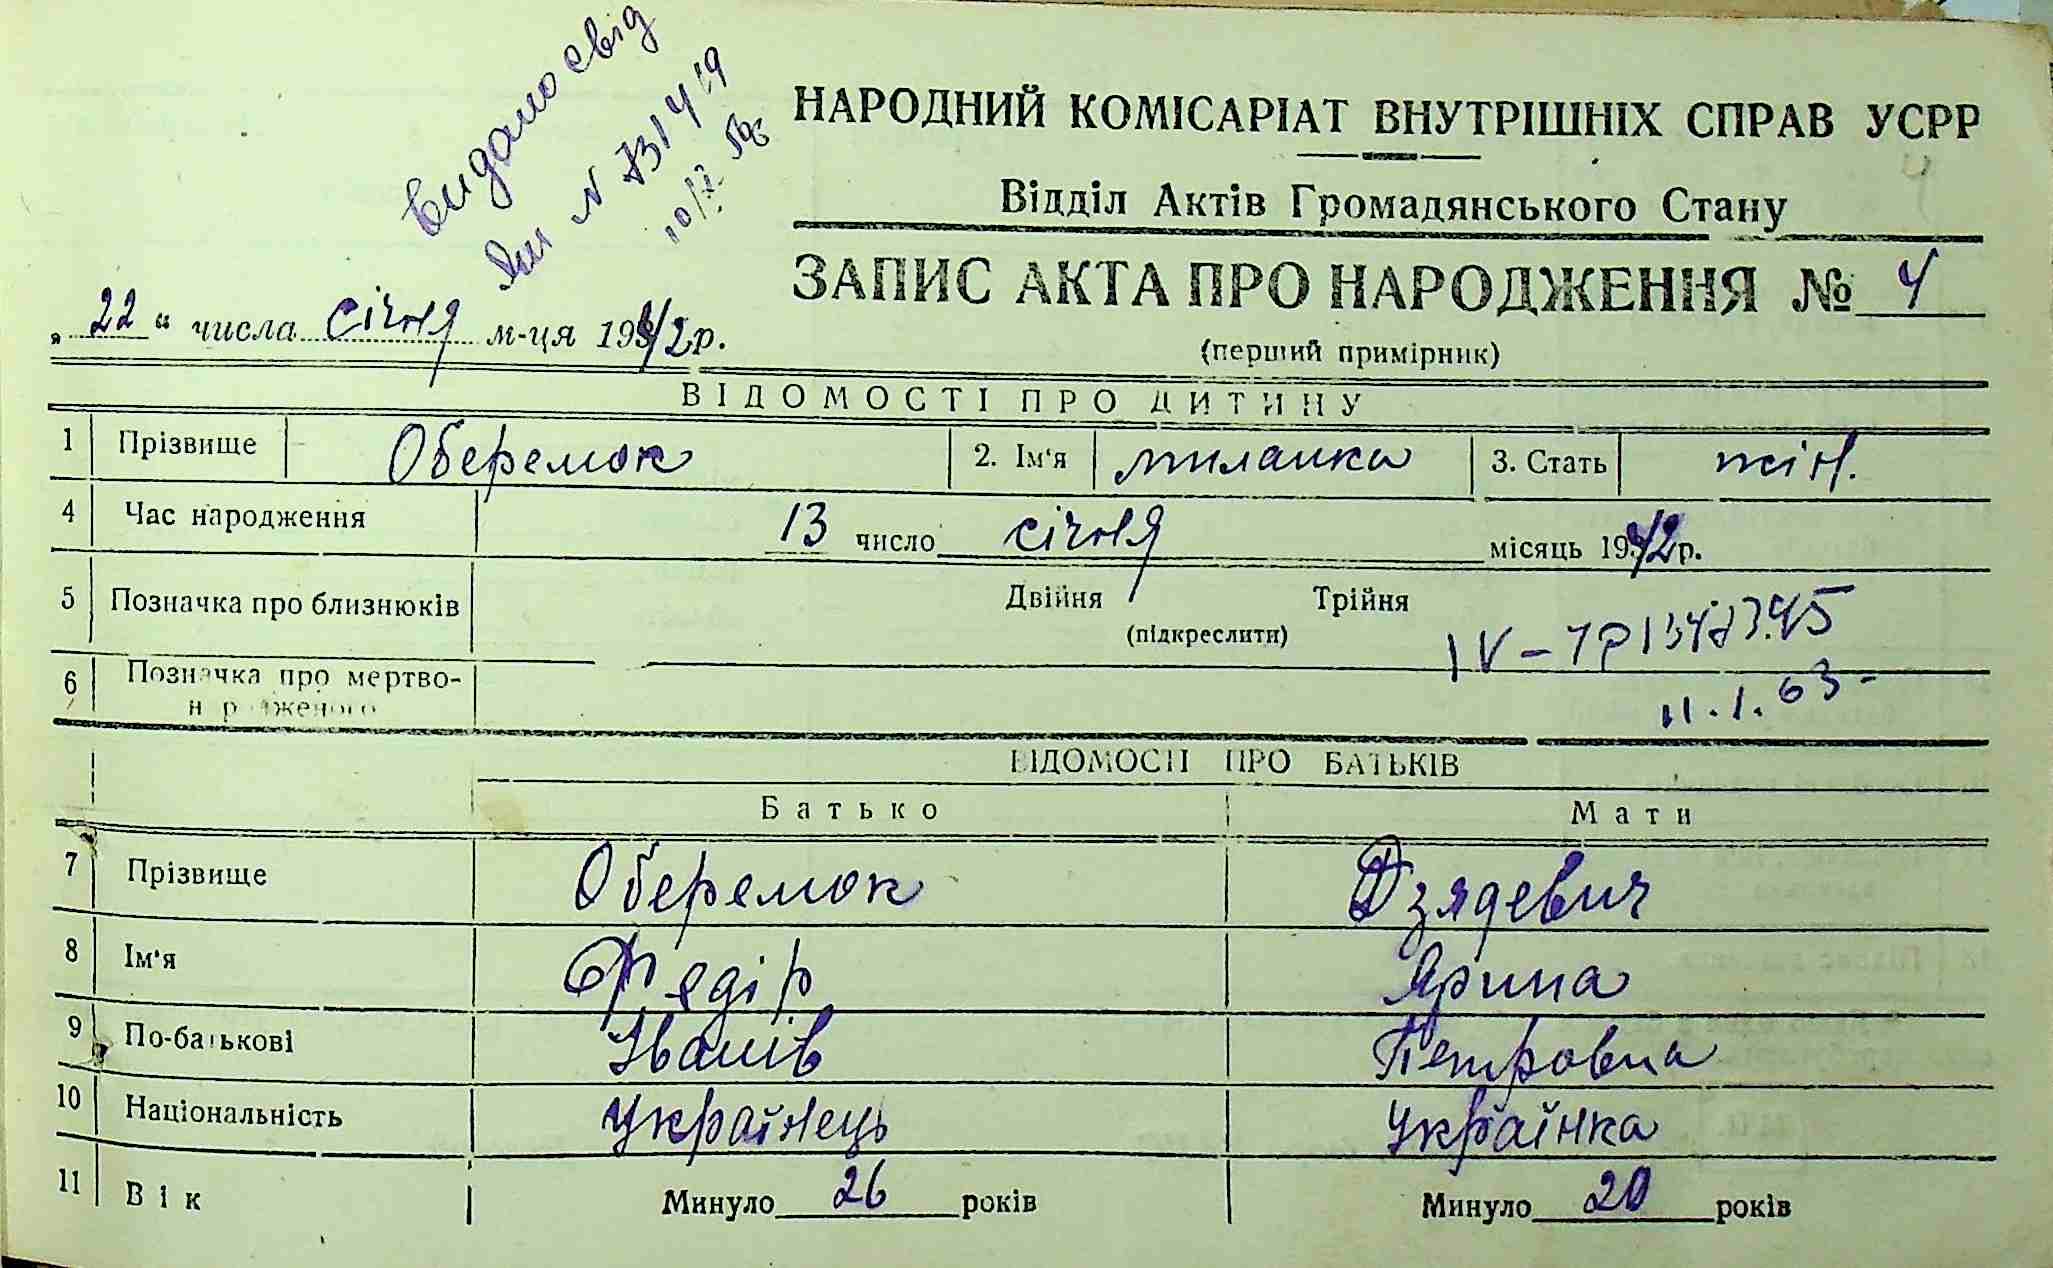 Видано свід
N 731419
НАРОДНИЙ КОМІСАРІАТ ВНУТРІШНІХ СПРАВ УСРР
4
Відділ Актів Громадянського Стану
ЗАПИС АКТА ПРО НАРОДЖЕННЯ № 4
(перший примірник)
„ 22 “ числа січня м-ця 1942 р.
ВІДОМОСТІ ПРО ДИТИНУ
1 Прізвище Оберемок 2. Ім'я миланка 3. Стать жін.
4 Час народження 13 число січня місяць 1942 р.
5 Позначка про близнюків Двійня Трійня
(підкреслити)
6 Позначка про мертво-
народженого
11.1.63
ВІДОМОСТІ ПРО БАТЬКІВ
Батько Мати
7 Прізвище Оберемок Дзядевич
8 Ім'я Федір Ярина
9 По-батькові Іванів Петровна
10 Національність Українець Українка
11 Вік Минуло 26 років Минуло 20 років